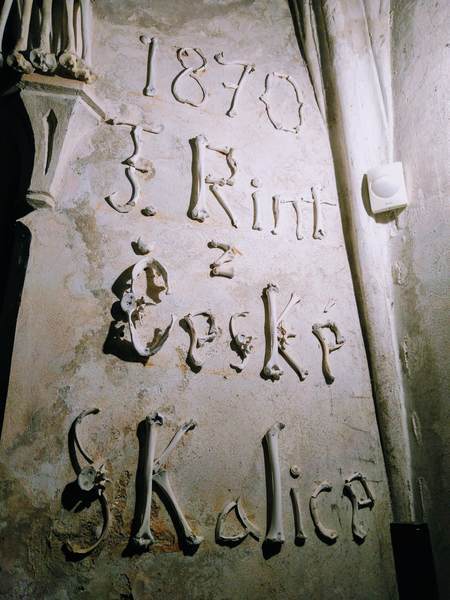 1870
J. Rint
z
České
Skalice